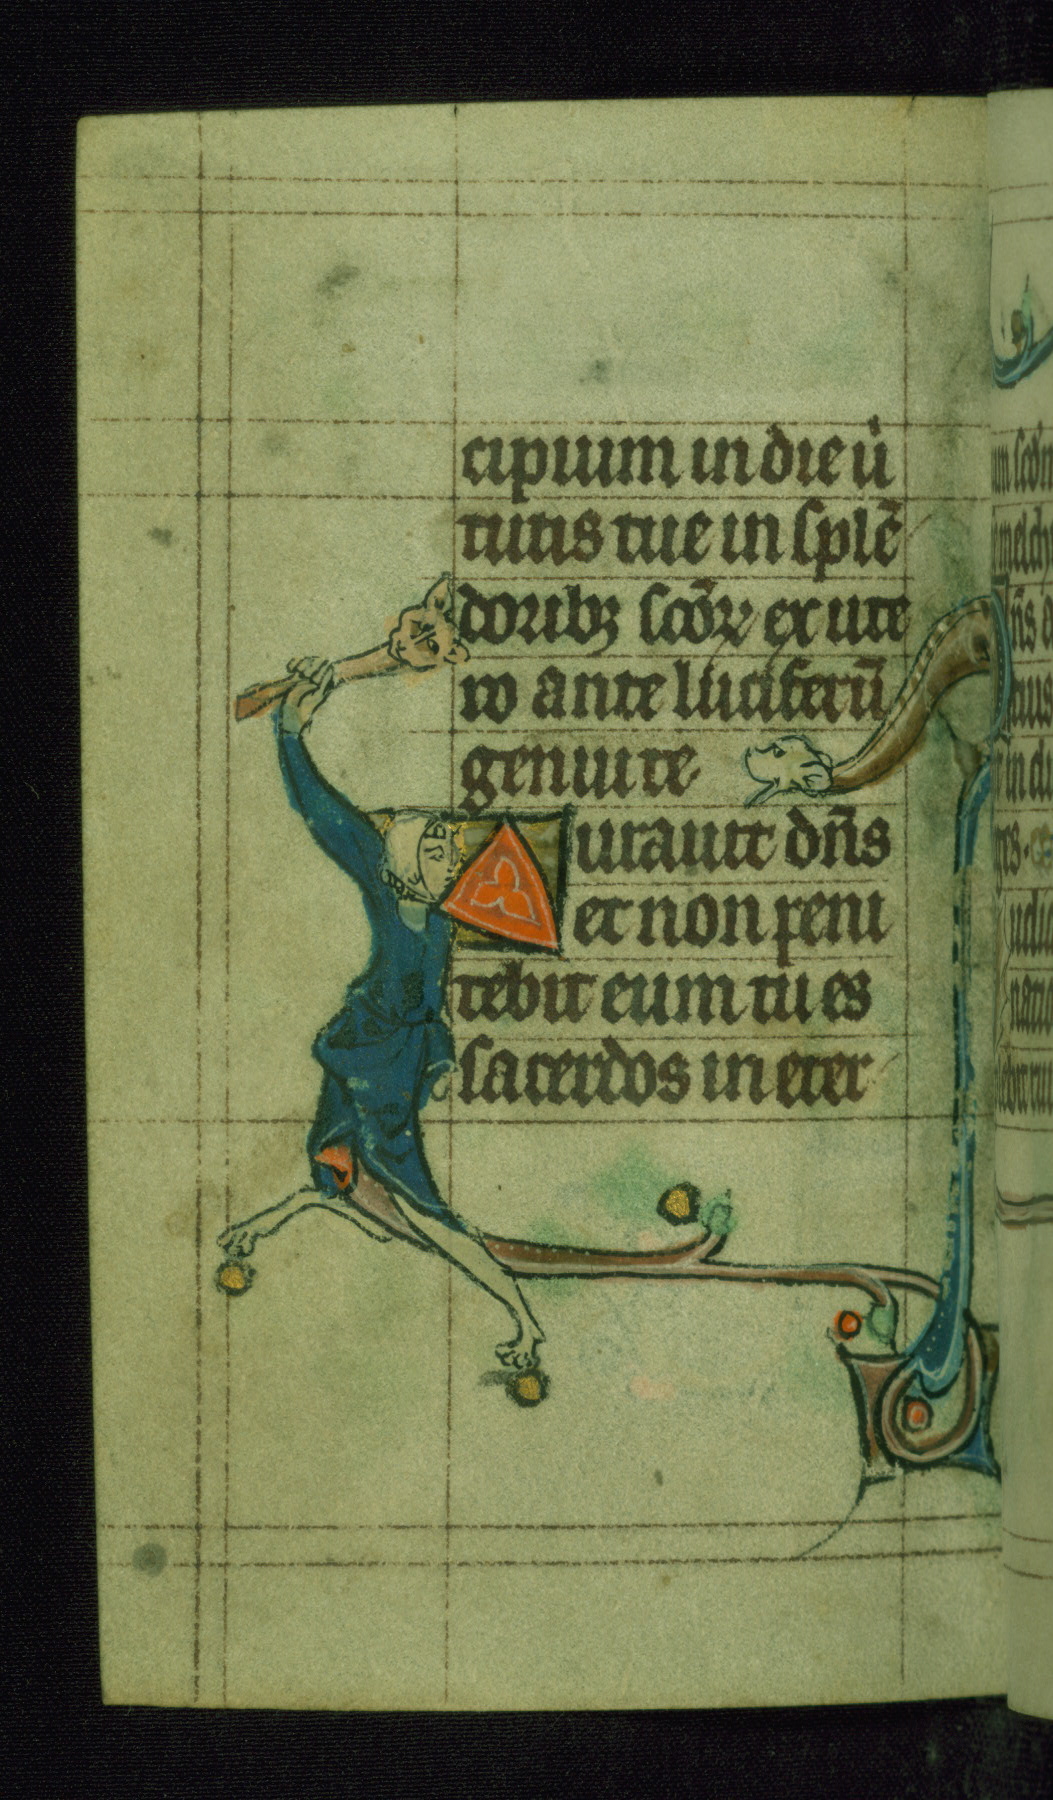 cipium in die ū
tutis tue in splē
doribꝫ scōꝝ ex ute
ro ante luciferū
genui te
urauit dn̄s
et non peni
tebit eum tu es
sacerdos in eter